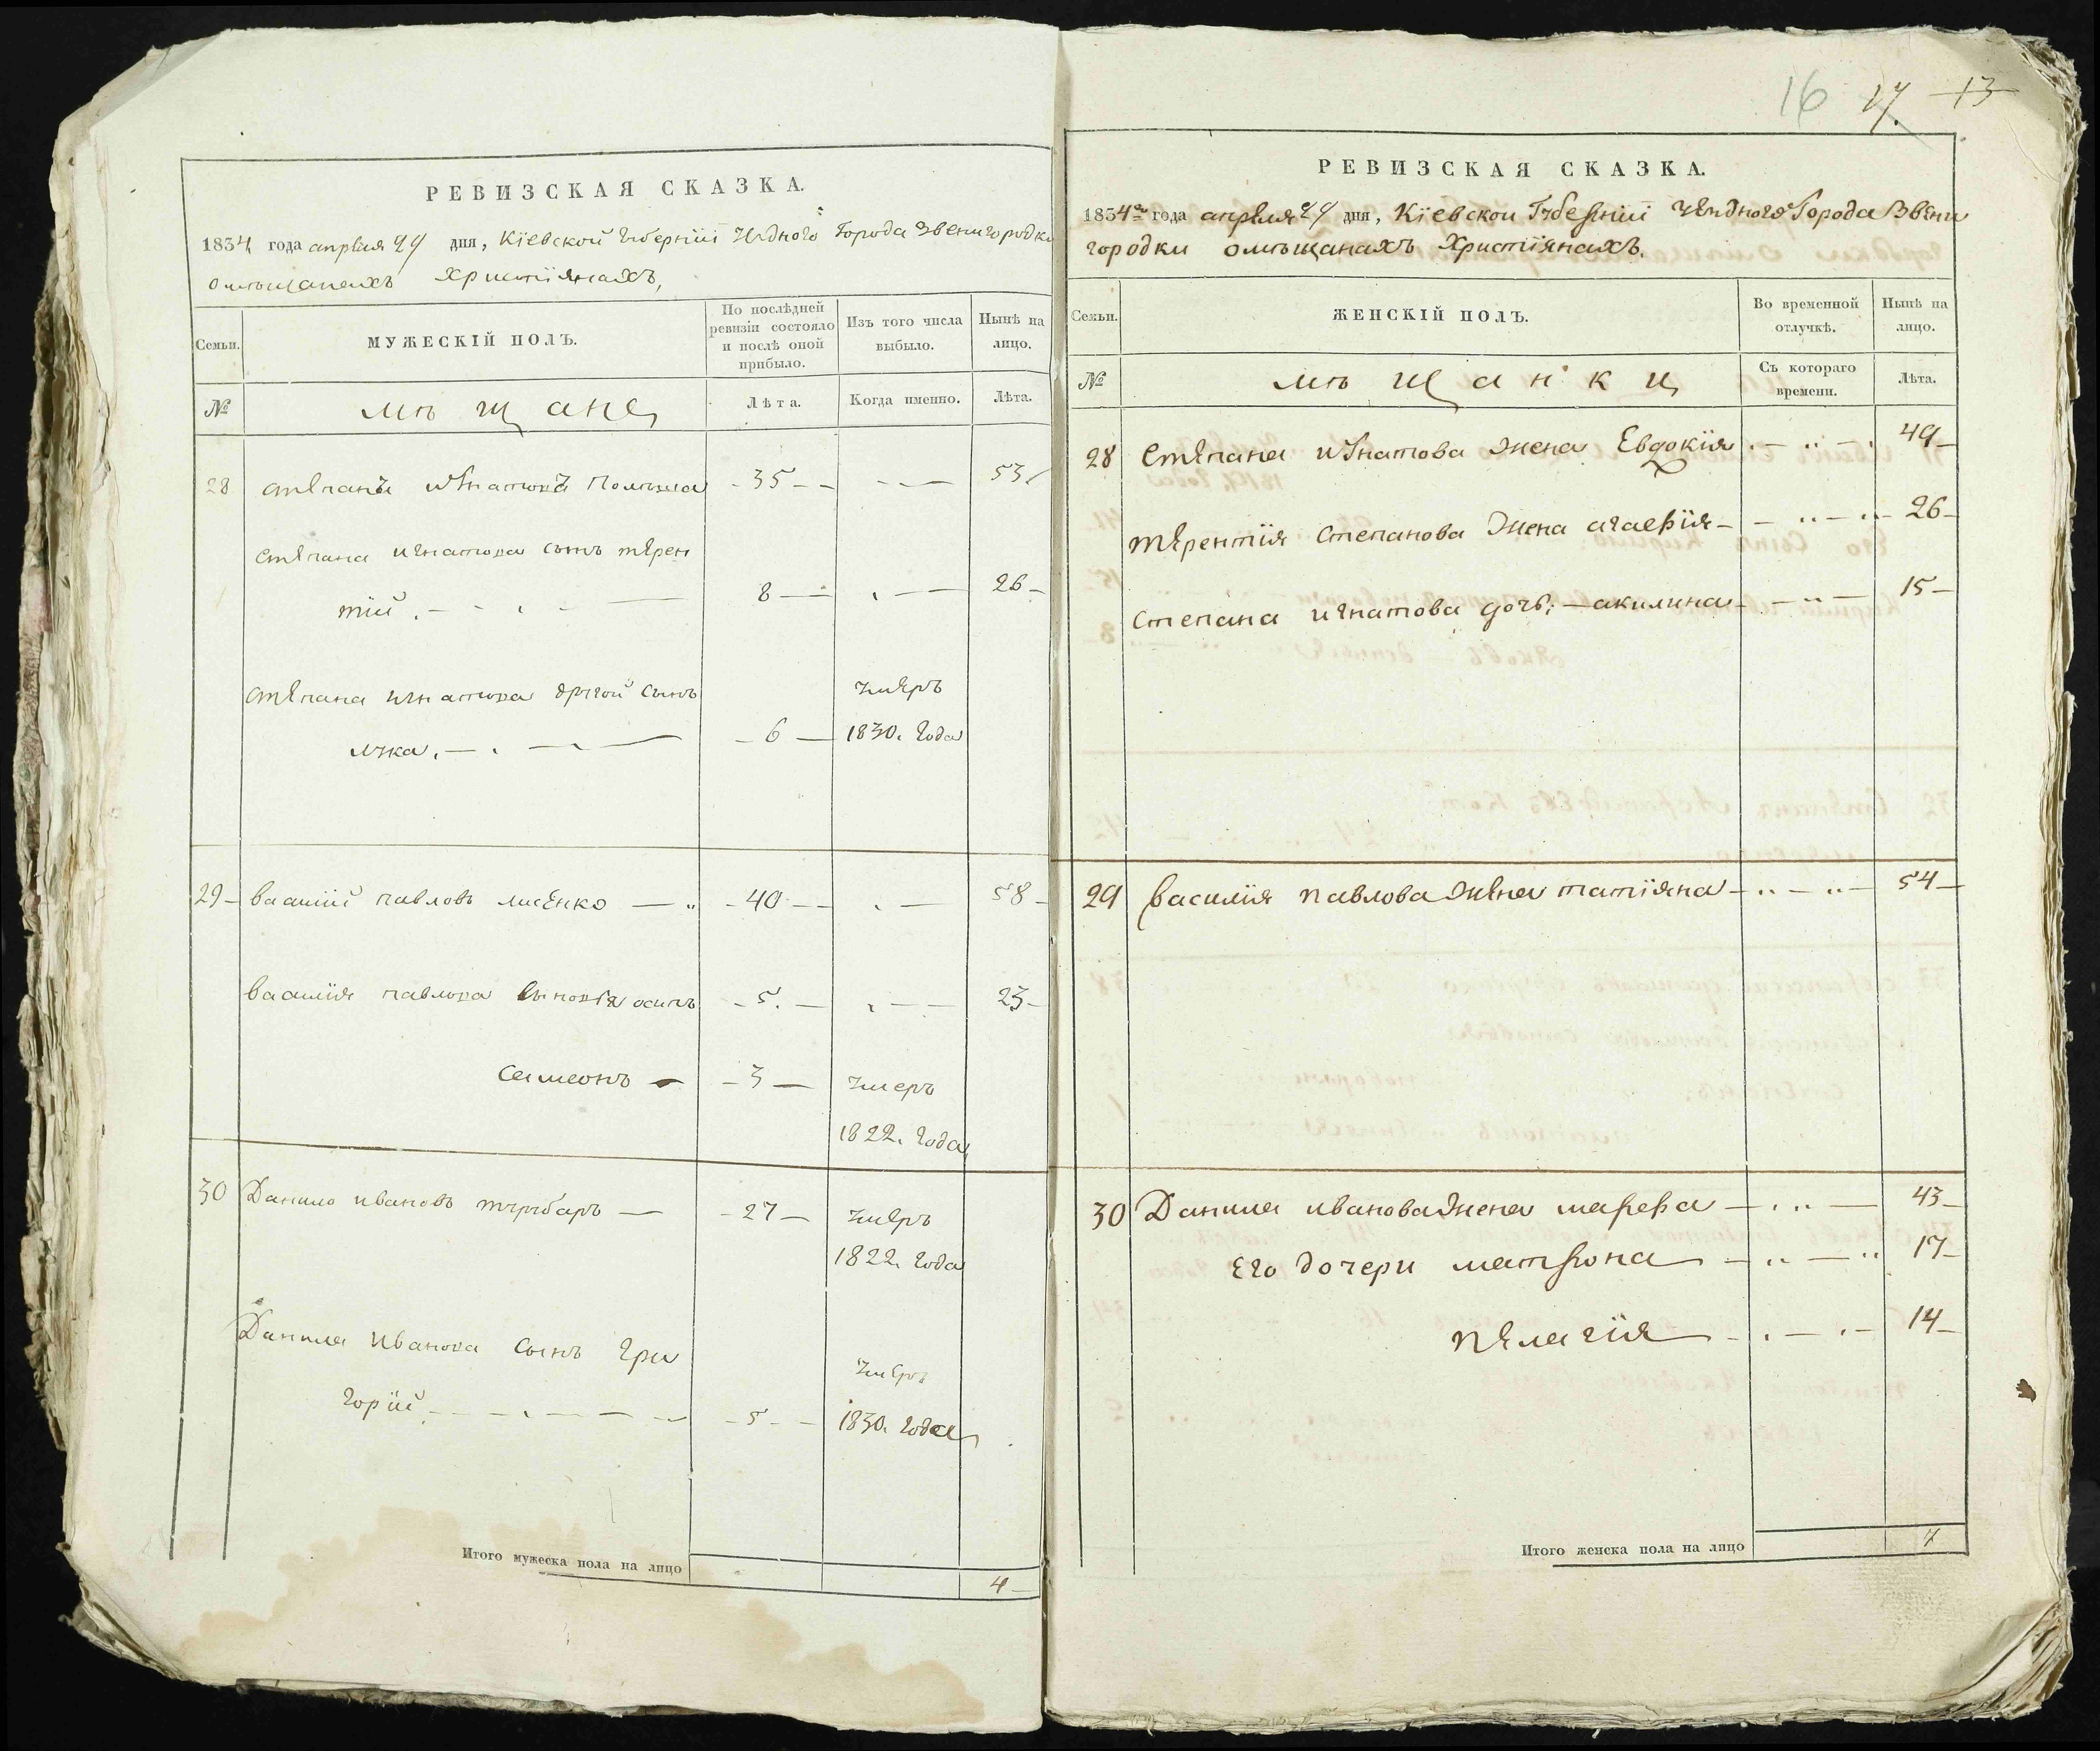 РЕВИЗСКАЯ СКАЗКА.
1834 года апреля 29 дня, Кіевской губерніи уездного Города Звенигородки
омѣщанахъ христіянахъ,
Семьи.
МУЖЕСКІЙ ПОЛЪ.
По послѣдней ревизіи состояло и послѣ оной прибыло.
Изъ того числа выбыло.
Нынѣ на лицо.
№
мѣщане
Лѣта.
Когда именно.
Лѣта.
28 степанъ игнатовъ - 35 - - - — 53
степана игнатова сынъ терен
тій . - - . - — 8 — . — — 26 -
степана игнатова другой сынъ умеръ
лука . — . — — - 6 — 1830. года
29 - василій павловъ лисенко — „ - 40 - - . — 58 -
василія павлова сыновья осипъ - 5. — . — — 23 -
семеонъ — - 3 — умеръ
1822. года
30 Данило ивановъ — - 27 — умеръ
1822. года
Данила иванова сынъ гри
умеръ
горій . — - . — — - - 5 - - 1830. года
Итого мужеска пола на лицо
4 —
16 17. 13
РЕВИЗСКАЯ СКАЗКА.
1834го года апреля 29 дня, Кіевской Губерніи уездного Города Звени
городки омѣщанахъ Христіянахъ.
Семьи.
ЖЕНСКІЙ ПОЛЪ.
Во временной отлучкѣ.
Нынѣ на лицо.
№
мѣщанки
Съ котораго времени.
Лѣта.
28 степана игнатова жена Евдокія . — .. — . 49 —
терентія степанова жена агафія — — .. — .. — 26 —
степана игнатова дочь; — акилина — . — .. — 15 —
29 василія павлова жена татіяна — .. — .. — 54 —
30 Данила иванова жена марфа — . .. — 43 —
его дочери матрона — — .. — .. 17 —
пелагія — — . — . — 14 —
Итого женска пола на лицо
7